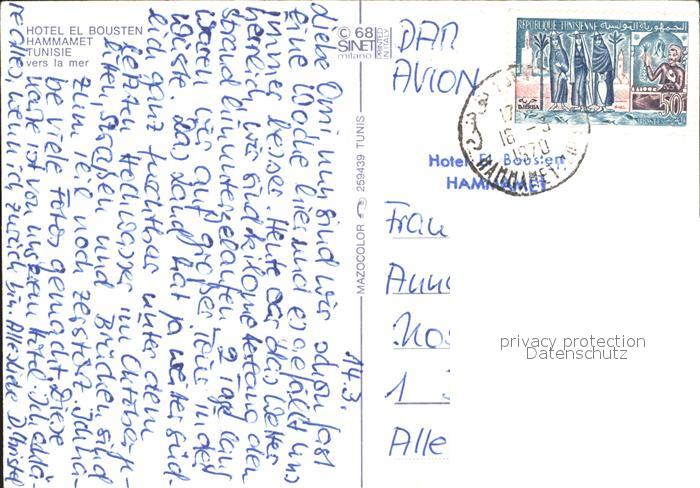 HOTEL EL BOUSTEN
HAMMAMET
TUNISIE
vers la mer
© 68
SINET
milano
PRINTED
IN ITALY
MAZOCOLOR 259439 TUNIS
14.3.
Liebe Omi nun sind wir schon fast
eine Woche hier und es gefällt uns
immer besser. Heute war das Wetter
herrlich, wir sind kilometerlang den
Strand hinuntergelaufen. 2 Tage lang
waren wir auf großer Tour in der
Wüste. Das Land hat ja weiter süd-
lich ganz furchtbar unter dem
letzten Hochwasser im Oktober ge-
litten, Straßen und Brücken sind
zum Teil noch zerstört. Ich ha-
be viele Fotos gemacht. Diese
Karte ist von unserem Hotel. Ich
wenn ich zurück bin. Alles Liebe
PAR
AVION
REPUBLIQUE TUNISIENNE
الجمهورية التونسية
DJERBA
جربة
50
16 - 3
1970
HAMMAMET
Hotel El Bousten
HAMMAMET
Frau
Anne
1
Alle
privacy protection
Datenschutz